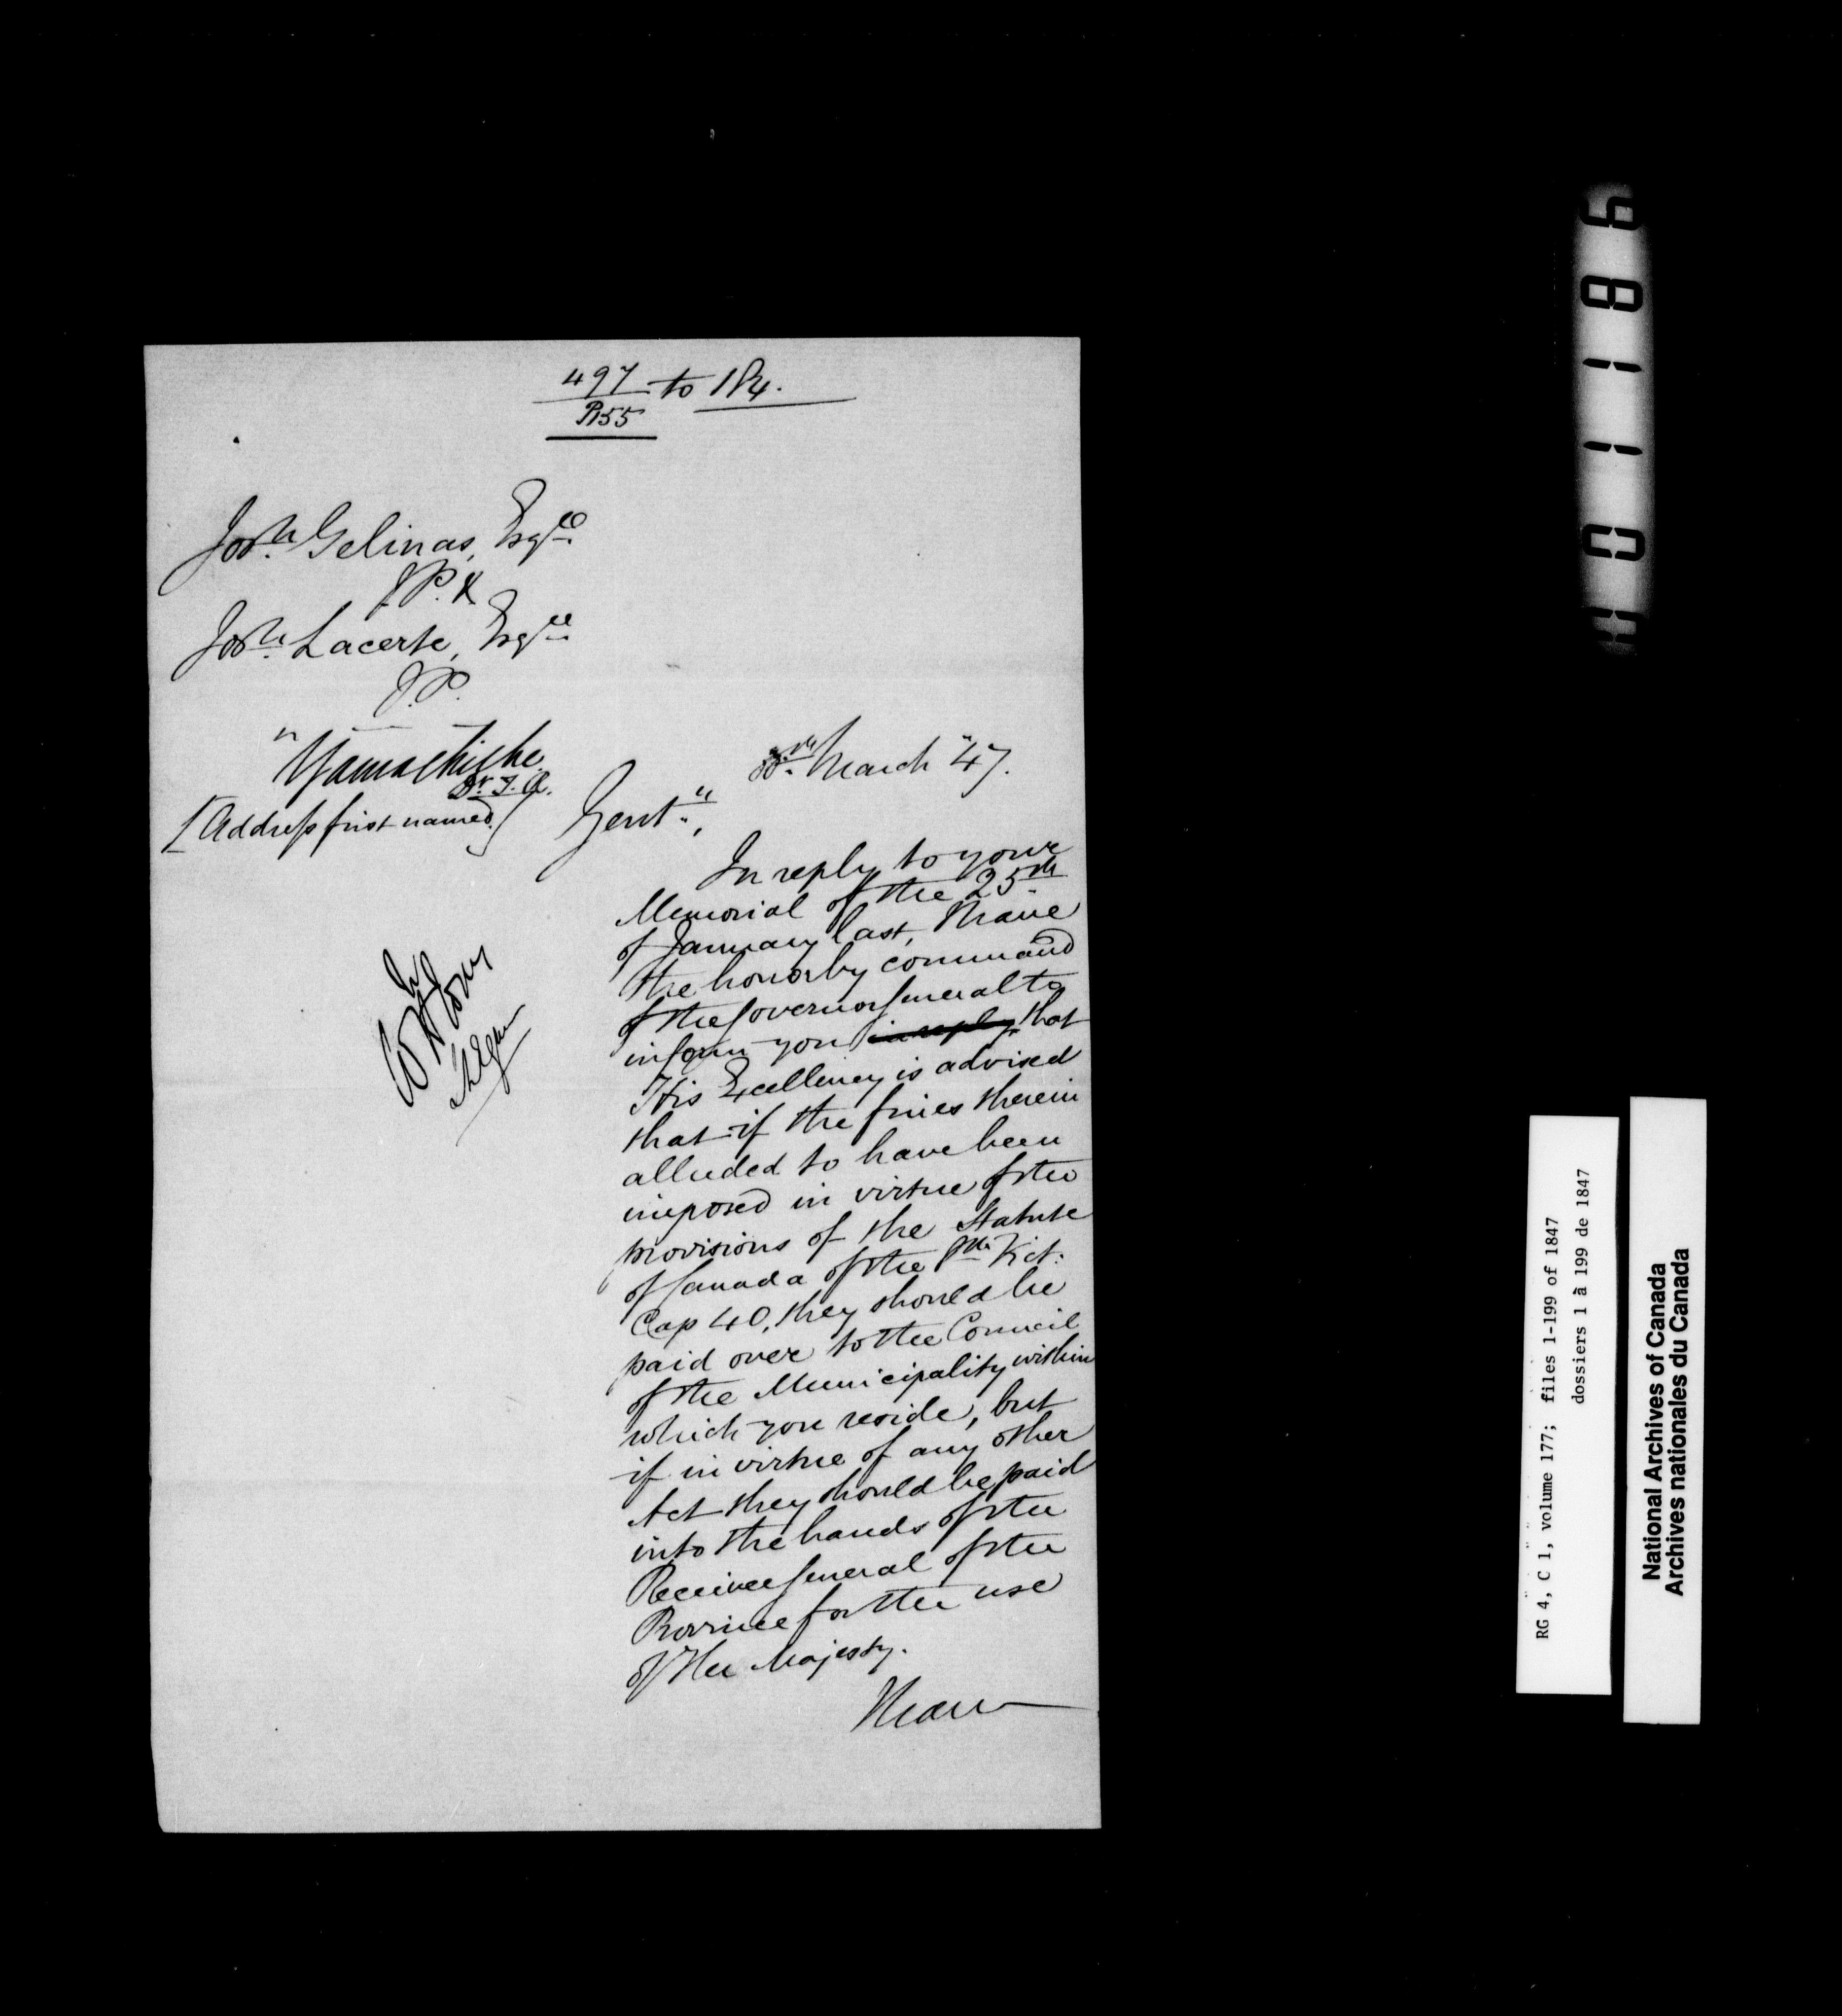 497 to 184.
R55
Josh. Gelinas, Esqre.
J.P. &
Josh. Lacerte, Esqre.
J.P.
Yamachiche.
Dr. T. R.
[Address first named.]
8th. March "47.
Gentn.,
In reply to your
Memorial of the 25th
of January last, I have
the honor by command
of the Governor General to
inform you in reply that
His Excellency is advised
that if the fines therein
alluded to have been
imposed in virtue of the
provisions of the Statute
of Canada of the 8th Vict:
Cap 40, they should be
paid over to the Council
of the Municipality within
which you reside, but
if in virtue of any other
Act they should be paid
into the hands of the
Receiver General of the
Province for the use
of Her Majesty.
I have
001186
RG 4, C 1, volume 177; files 1-199 of 1847
dossiers 1 à 199 de 1847
National Archives of Canada
Archives nationales du Canada